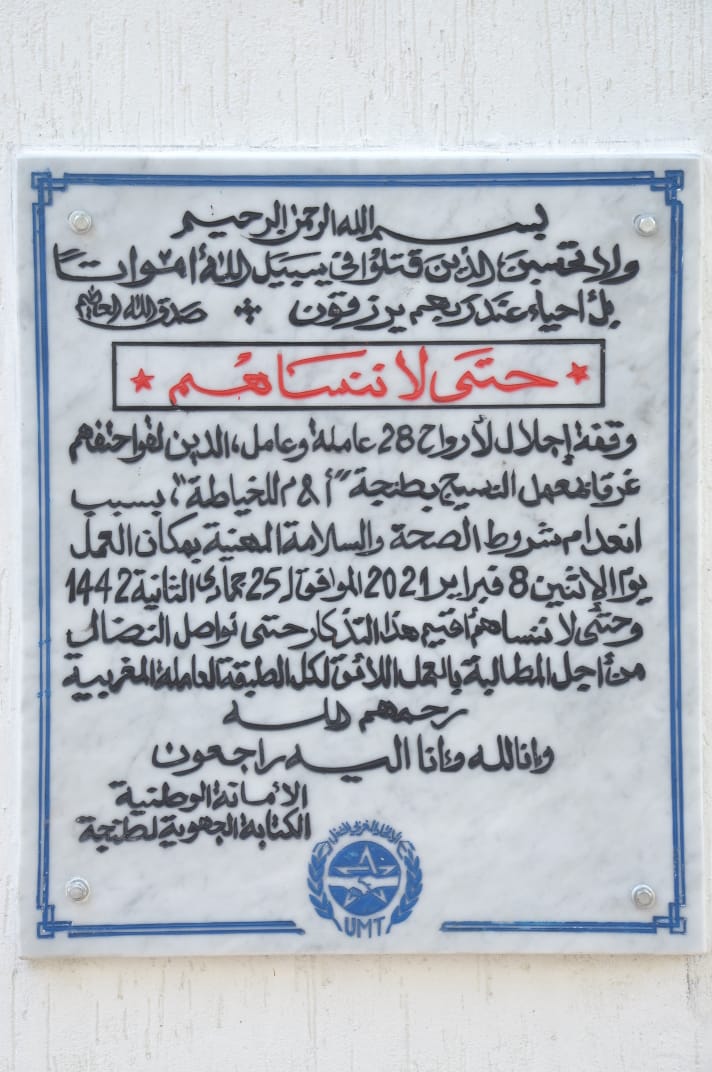 بسم الله الرحمن الرحيم
ولا تحسبن الذين قتلوا في سبيل الله أمواتا
بل أحياء عند ربهم يرزقون صدق الله العظيم
حتى لا ننساهم
وقفة إجلال لأرواح 28 عاملة وعامل، الذين لقوا حتفهم
غرقا بمعمل النسيج بطنجة "أ & م للخياطة"، بسبب
انعدام شروط الصحة والسلامة المهنية بمكان العمل
يوم الإثنين 8 فبراير 2021 الموافق ل 25 جمادى الثانية 1442
وحتى لا ننساهم أقيم هذا التذكار حتى نواصل النضال
من أجل المطالبة بالعمل اللائق لكل الطبقة العاملة المغربية
رحمهم الله
وإنا لله وإنا إليه راجعون
الأمانة الوطنية
الكتابة الجهوية لطنجة
الاتحاد المغربي للشغل
UMT